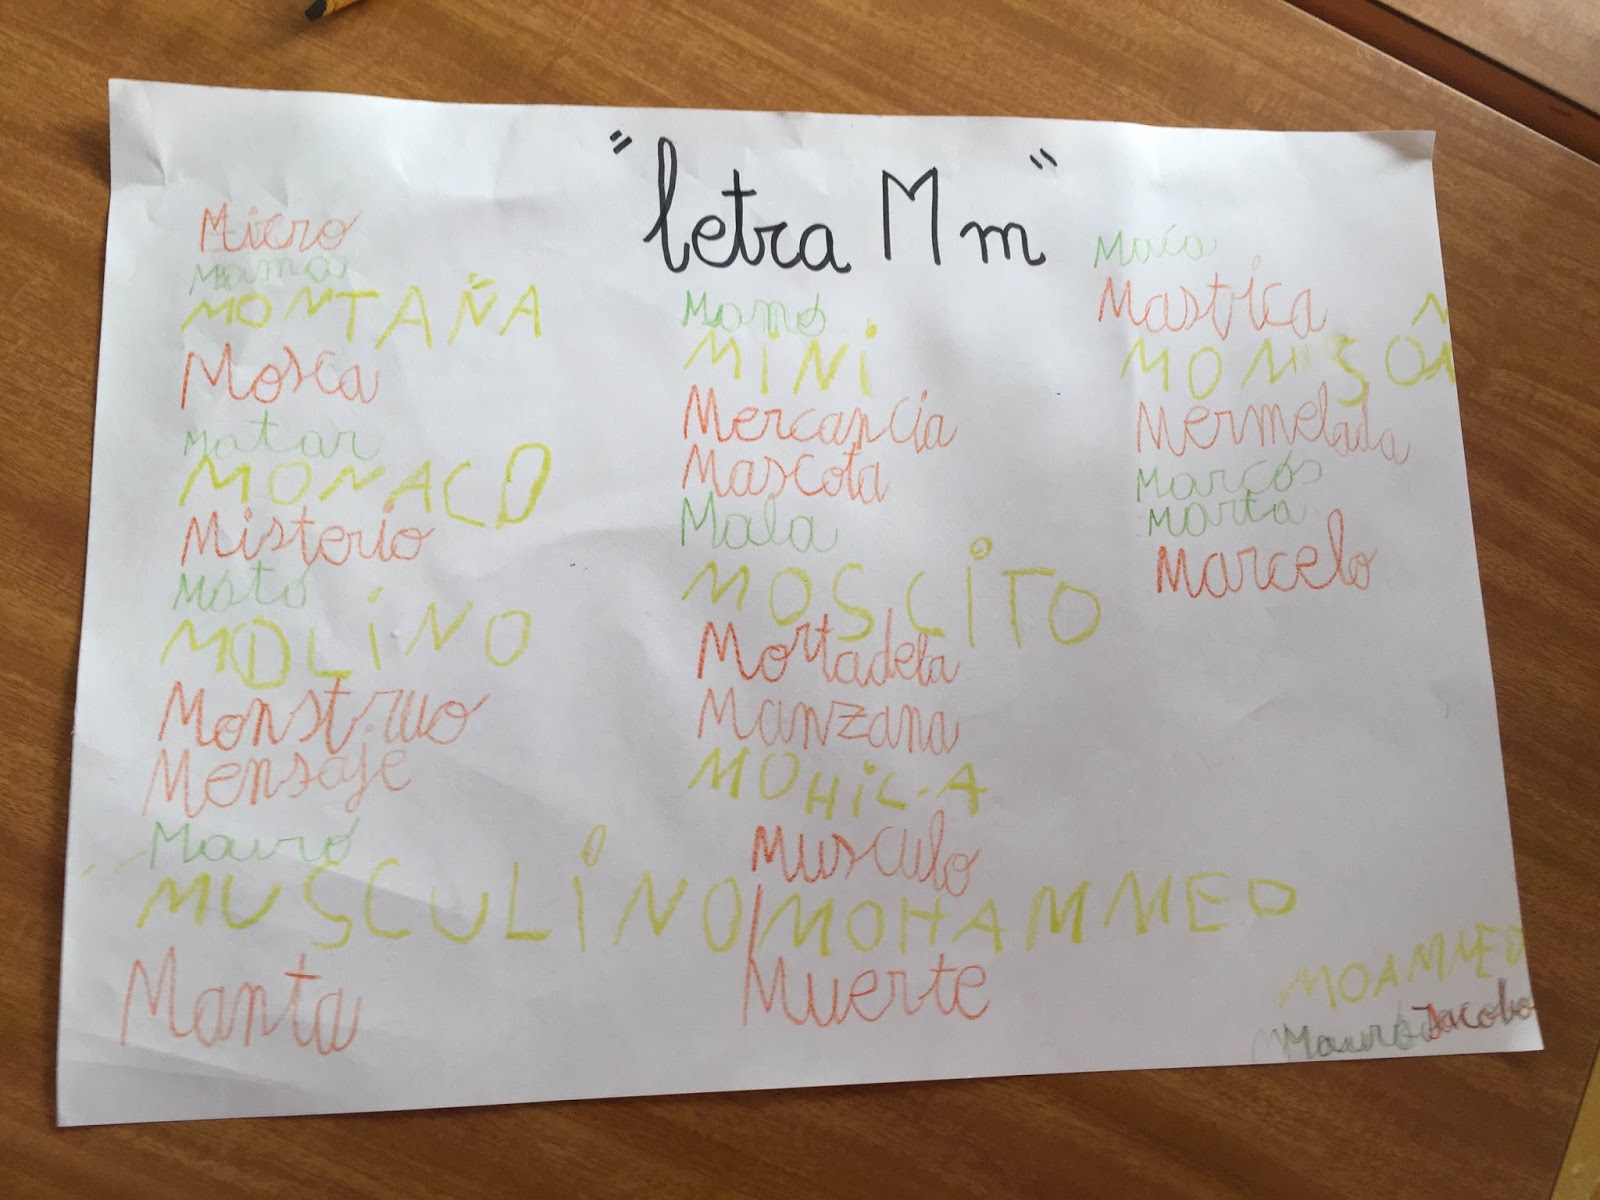 "letra M m"
Micro
Mama
MONTAÑA
Mosca
Matar
MONACO
Misterio
Moto
MOLiNO
Monstruo
Mensaje
Mauro
MUSCULiNO
Manta
Momo
MiNi
Mercancía
Mascota
Mala
MOSCiTO
Mortadela
Manzana
MOHiL-A
Musculo
MOHAMMED
Muerte
Mastica
Mermelada
Marcos
Marta
Marcelo
MOAMMED
Mauro Jacobo